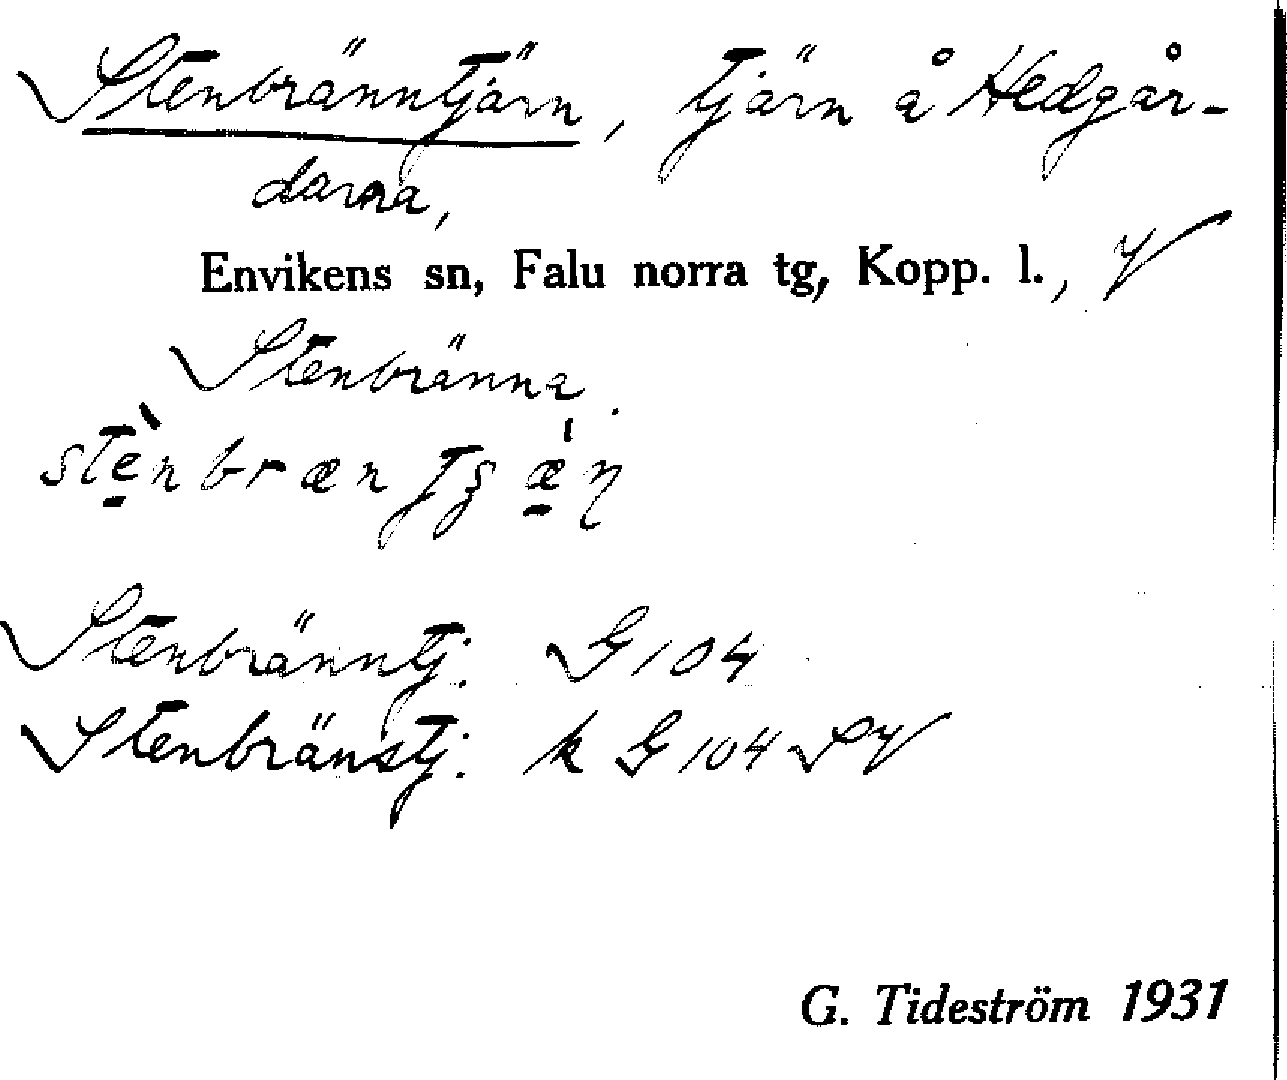 Stenbränntjärn, tjärn å Hedgår-
darna,
Envikens sn, Falu norra tg, Kopp. l., V
Stenbränna
stènbræntʂæ̀ɳ
Stenbränntj. G 104
Stenbränstj. k G 104 SV
G. Tideström 1931